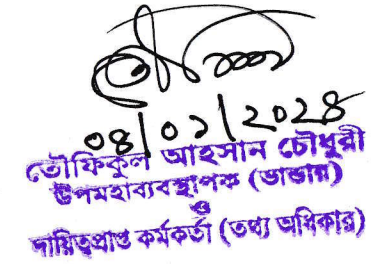 ০৪/০২/২০২৪
তৌফিকুল আহসান চৌধুরী
উপমহাব্যবস্থাপক (ভান্ডার)
ও
দায়িত্বপ্রাপ্ত কর্মকর্তা (তথ্য অধিকার)